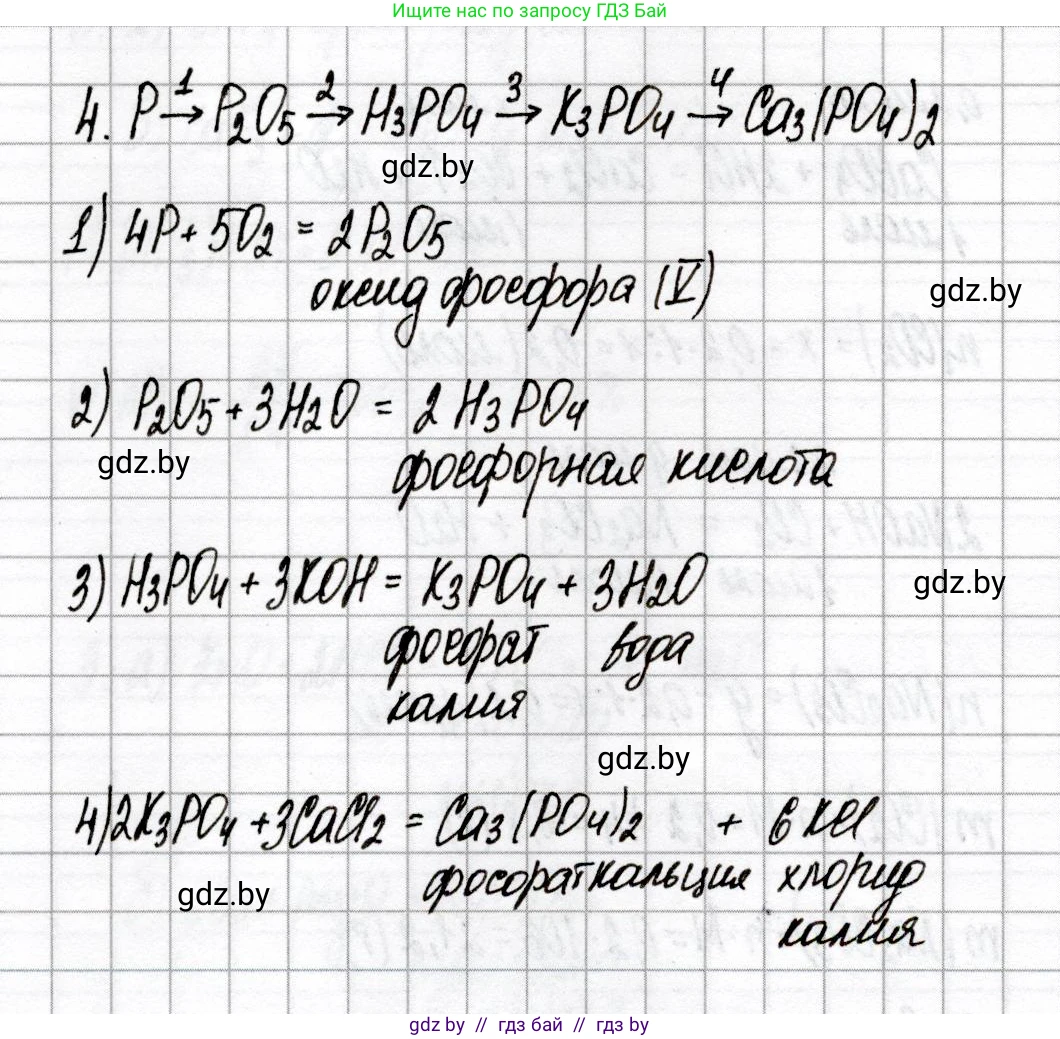 Ищите нас по запросу ГДЗ Бай
4. P →1 P2O5 →2 H3PO4 →3 K3PO4 →4 Ca3(PO4)2
gdz.by
1) 4P + 5O2 = 2P2O5
оксид фосфора (V)
gdz.by
2) P2O5 + 3H2O = 2 H3PO4
gdz.by
фосфорная кислота
3) H3PO4 + 3KOH = K3PO4 + 3H2O
gdz.by
фосфат вода
калия
gdz.by
4) 2K3PO4 + 3CaCl2 = Ca3(PO4)2 + 6KCl
фосфат кальция хлорид
gdz.by
калия
gdz.by // гдз бай // gdz.by